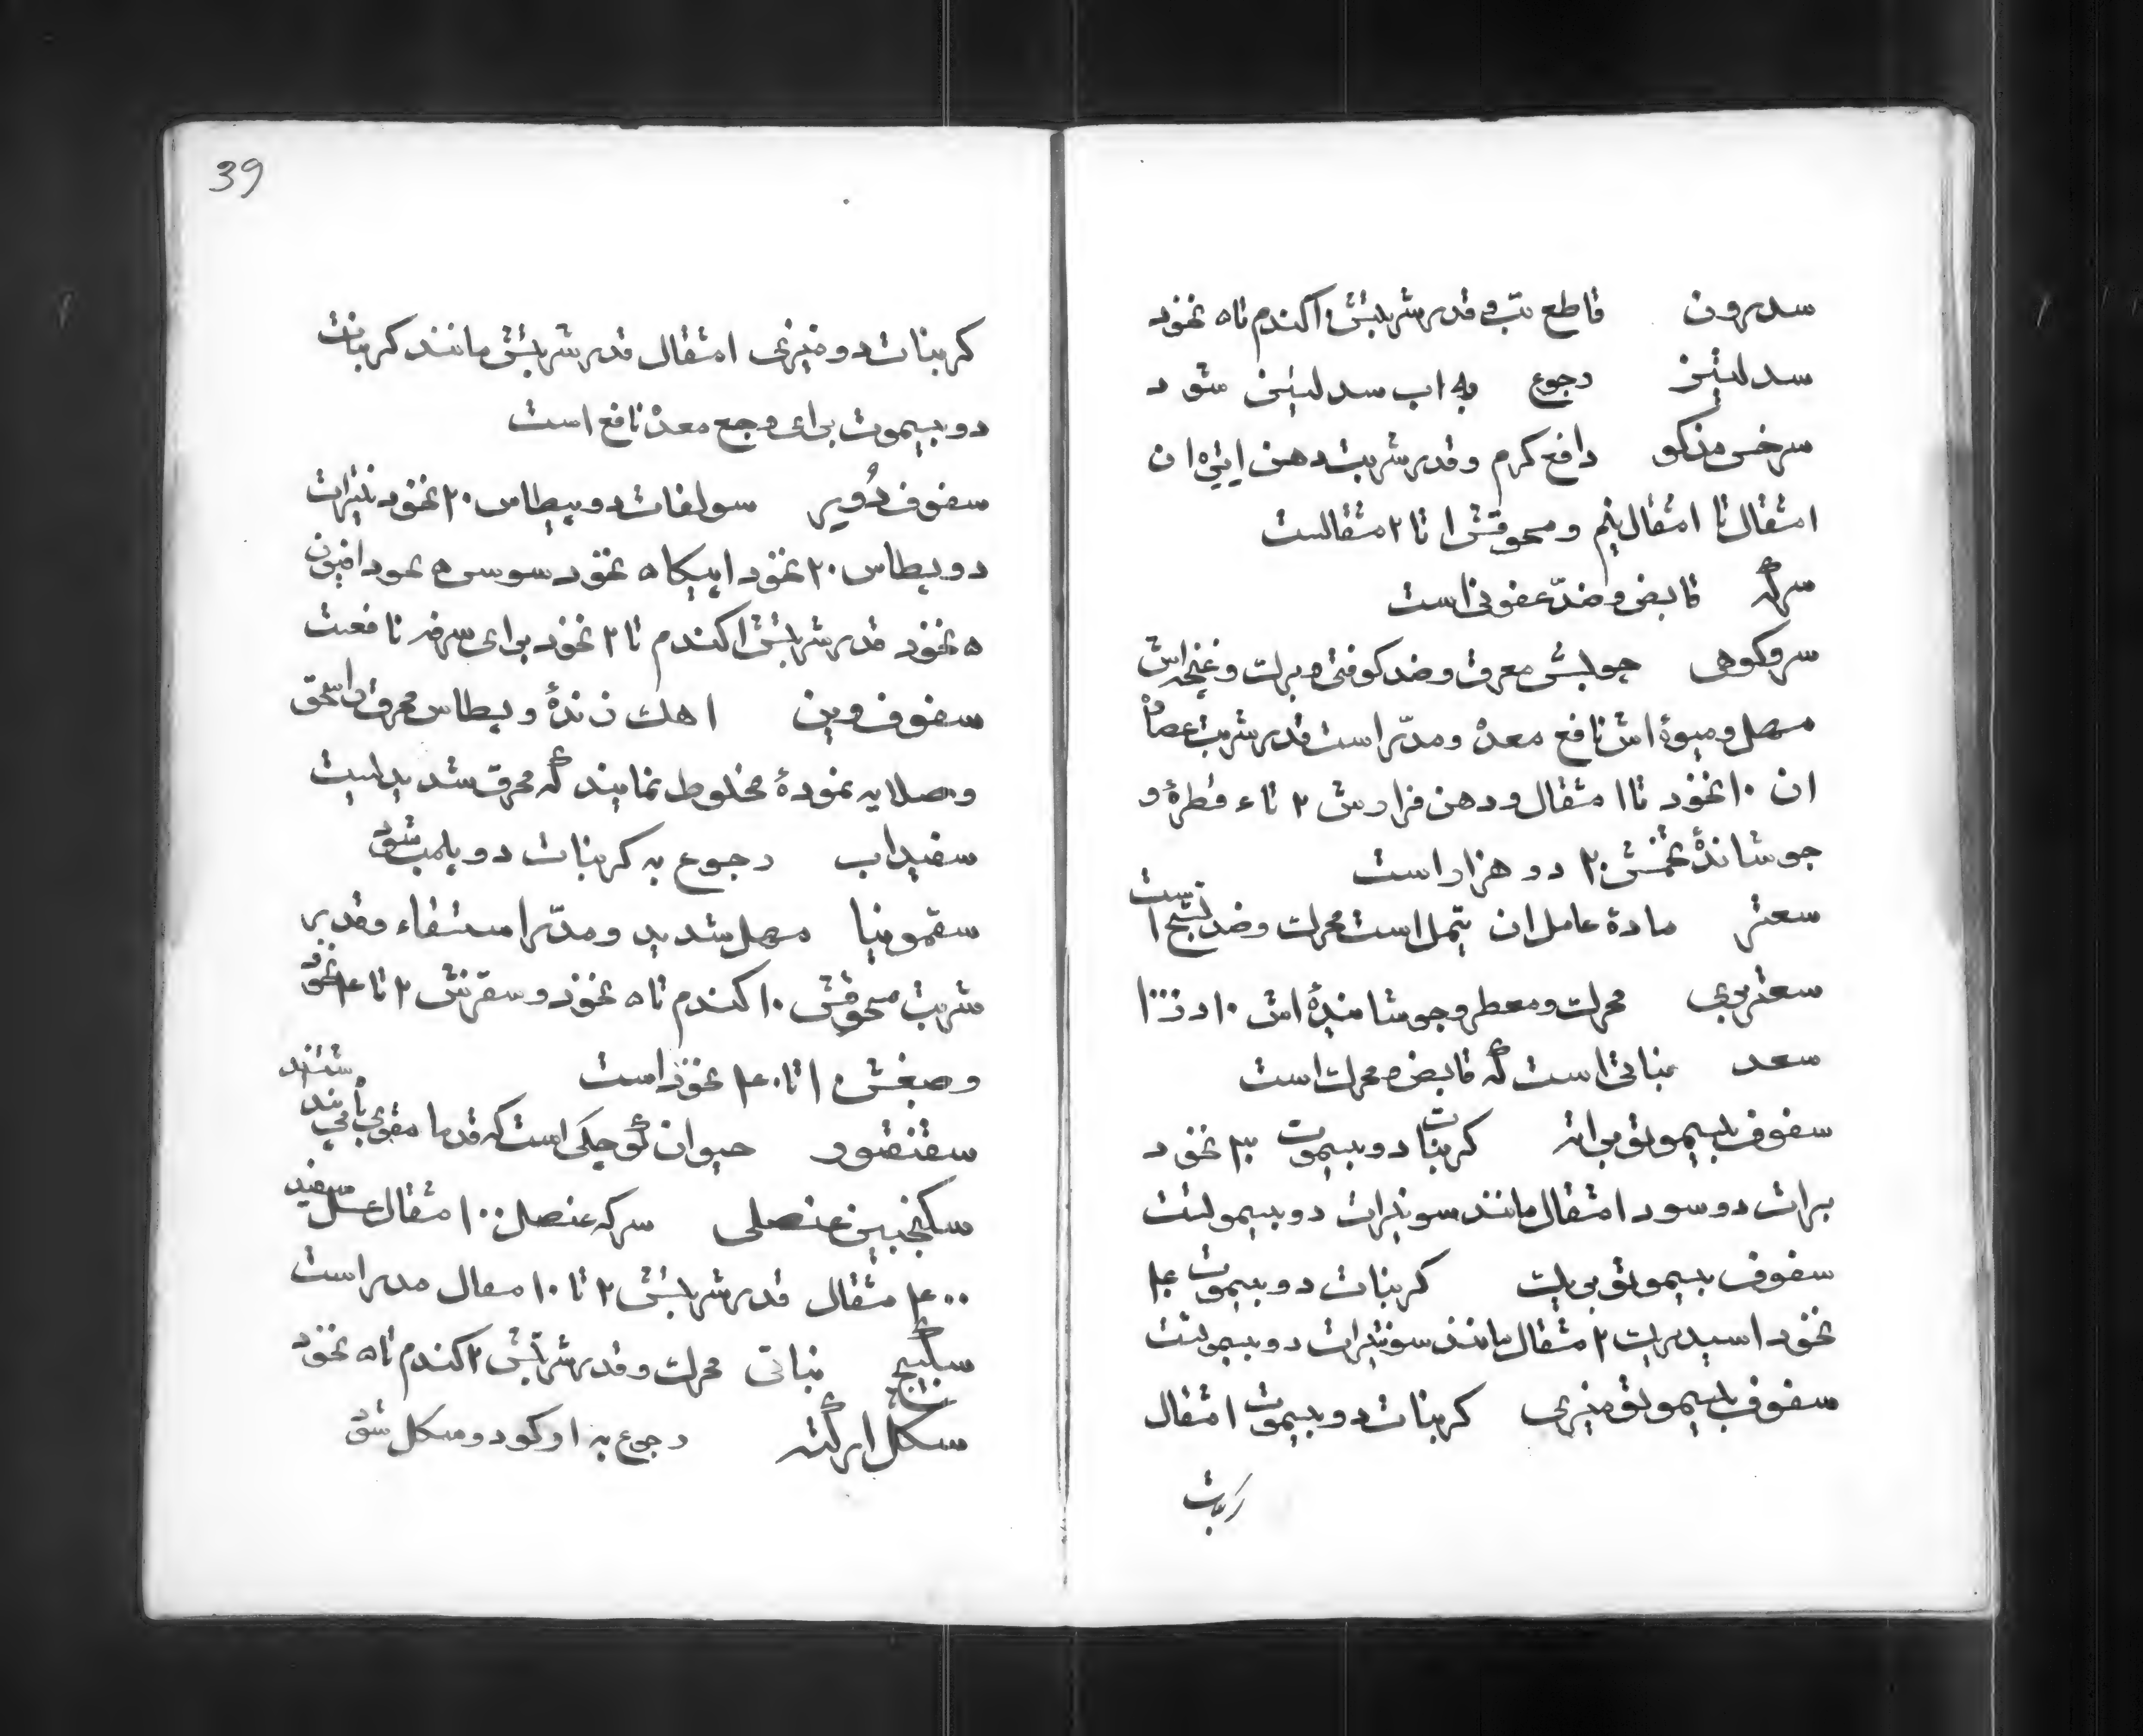 سدرون قاطع تب و قدر شربتش ۱ کندم تا ۵ نخود
سدلیتز رجوع به اب سدلیتز شود
سرخس مذکو دافع کرم و قدر شربت دهن ایثره ان
۱ مثقال تا ۱ مثقال نیم و مسحوقش ۱ تا ۲ مثقالست
سرکه قابض و ضدّ عفونی است
سروکوهی چوبش معرق و ضد کوفتی و برلت و غنچه اش
مسهل و میوهٔ اش نافع معده و مدّر است قدر شربت عصاره
ان ۱۰ نخود تا ۱ مثقال و دهن فرارش ۲ تا ۴ قطرهٔ و
جوشاندهٔ تخمش ۲۰ در هزار است
سعتر مادهٔ عامل ان تیمل است محرلت و ضد تشنج است
سعتر بری محرلت و معطر و جوشاندهٔ اش ۱۰ در ۱۰۰۰
سعد نباتی است که قابض و محرلت است
سفوف بیسموتو براته کربنات دوبیسموت ۳ نخود
برات دوسود ۱ مثقال مانند سونیترات دوبیسمولست
سفوف بیسموتو بی یلت کربنات دوبیسموت ۴
نخود اسیدبریت ۲ مثقال مانند سونیترات دوبیسموتست
سفوف بیسموتو منیزی کربنات دوبیسموت ۱ مثقال
کربنات
39
کربنات دو منیزی ۱ مثقال قدر شربتش مانند کربنات
دوبیسموت برای وجع معده نافع است
سفوف دُویر سولفات دوپطاس ۲۰ نخود نیترات
دوپطاس ۲۰ نخود ایپکا ۵ نخود سوس ۵ نخود افیون
۵ نخود قدر شربتش ۱ کندم تا ۲ نخود برای سرفه نافعست
سفوف وین اهک زندهٔ و پطاس محرق را سحق
و صلایه نمودهٔ مخلوط نمایند که محرق شدیدیست
سفیداب رجوع به کربنات دوپلمب شود
سقمونیا مسهل شدید و مدّر استسقاء و قدر
شربت مسحوقش ۱۰ کندم تا ۵ نخود و سقزش ۲ تا ۴ نخود
و صبغش ۱۰ تا ۴۰ نخوذ است
سقنقور حیوان کوچکی است که قدما مقوی باه میدانستند
سکنجبین عنصلی سرکه عنصل ۱۰۰ مثقال عسل سفید
۴۰۰ مثقال قدر شربتش ۲ تا ۱۰ مثقال مدر است
سکبینج نباتی محرلت و قدر شربتش ۲ کندم تا ۵ نخود
سکل ارکته رجوع به ارکود و سکل شود